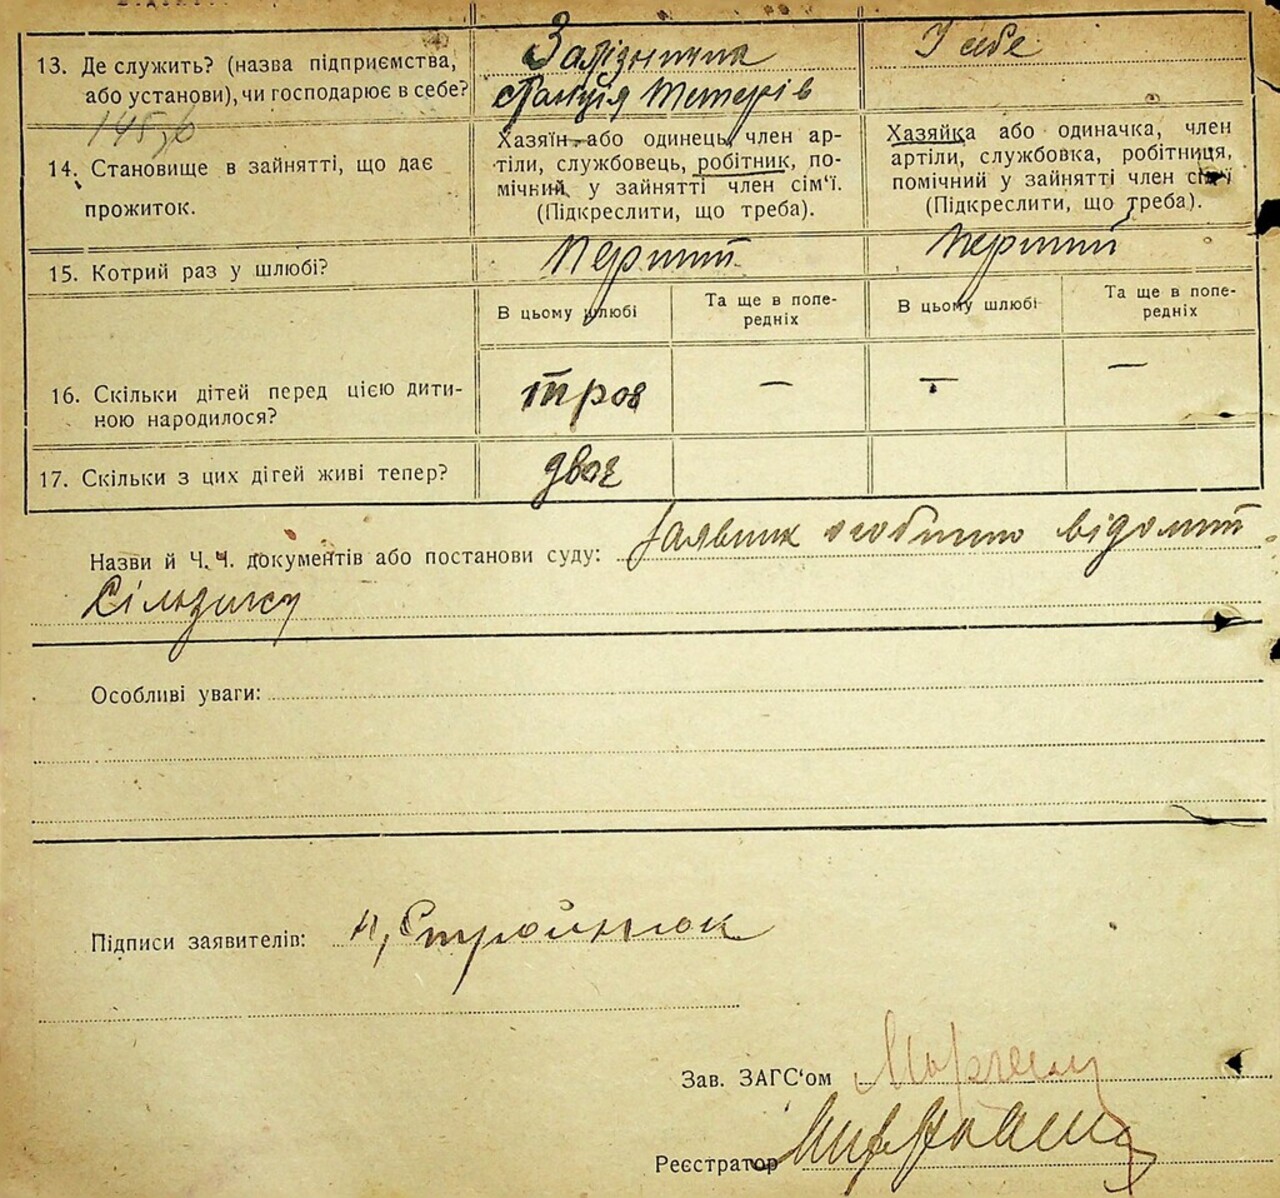 13. Де служить? (назва підприємства, або установи), чи господарює в себе?
Залізниця
станція Тетерів
У себе
145,6
14. Становище в зайнятті, що дає прожиток.
Хазяїн або одинець, член ар-
тіли, службовець, робітник, по-
мічний у зайнятті член сім‘ї.
(Підкреслити, що треба).
Хазяйка або одиначка, член
артіли, службовка, робітниця,
помічний у зайнятті член сім‘ї
(Підкреслити, що треба).
15. Котрий раз у шлюбі?
перший
перший
В цьому шлюбі
Та ще в попе-
редніх
В цьому шлюбі
Та ще в попе-
редніх
16. Скільки дітей перед цією дити-
ною народилося?
троє
—
—
—
17. Скільки з цих дітей живі тепер?
двоє
Назви й Ч. Ч. документів або постанови суду: Заявник особисто відомий
Особливі уваги:
Підписи заявителів: Стройнюк
Зав. ЗАГС‘ом
Реєстратор